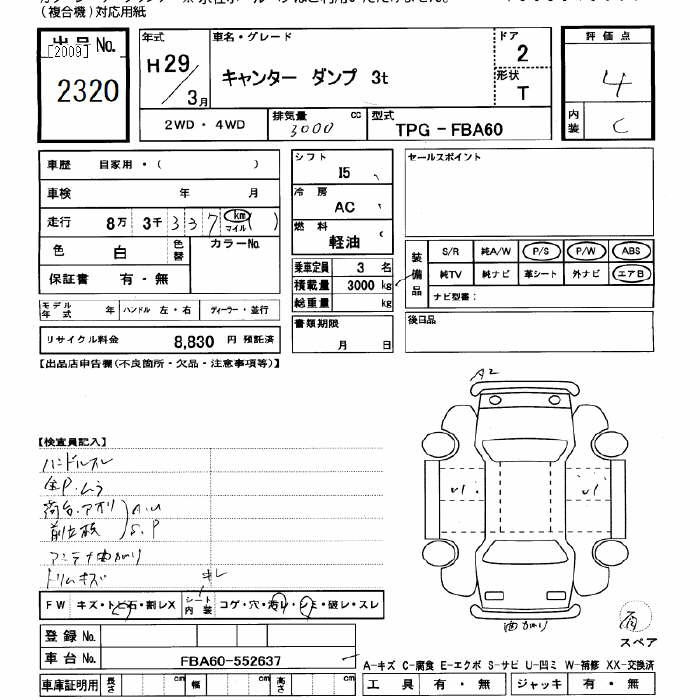 (複合機)対応用紙
出品No.
[2009]
2320
年式
H29/3月
車名・グレード
キャンター ダンプ 3t
ドア
2
形状
T
評価点
4
内装
C
2WD・4WD
排気量
3000 cc
型式
TPG-FBA60
車歴 自家用・( )
車検 年 月
走行 8万 3千 3 3 7 km マイル ( )
色 白 色替 カラーNo.
保証書 有・無
モデル年式 年 ハンドル 左・右 ディーラー・並行
リサイクル料金 8,830 円 預託済
シフト
I5
冷房
AC
燃料
軽油
乗車定員 3 名
積載量 3000 kg
総重量 kg
書類期限
月 日
セールスポイント
装備品
S/R 純A/W P/S P/W ABS
純TV 純ナビ 革シート 外ナビ エアB
ナビ型番:
後日品
【出品店申告欄(不良箇所・欠品・注意事項等)】
A2
【検査員記入】
ハンドルスレ
全P.ムラ
荷台.アオリ A.U
前立板 S.P
アンテナ曲がり
トリムキズ
キレ
FW キズ・トビ石・割レX シート内装 コゲ・穴・汚レ・シミ・破レ・スレ
曲がり
雨
スペア
登録No.
車台No. FBA60-552637
A-キズ C-腐食 E-エクボ S-サビ U-凹ミ W-補修 XX-交換済
車庫証明用 長さ cm 幅 cm 高さ cm
工具 有・無 ジャッキ 有・無